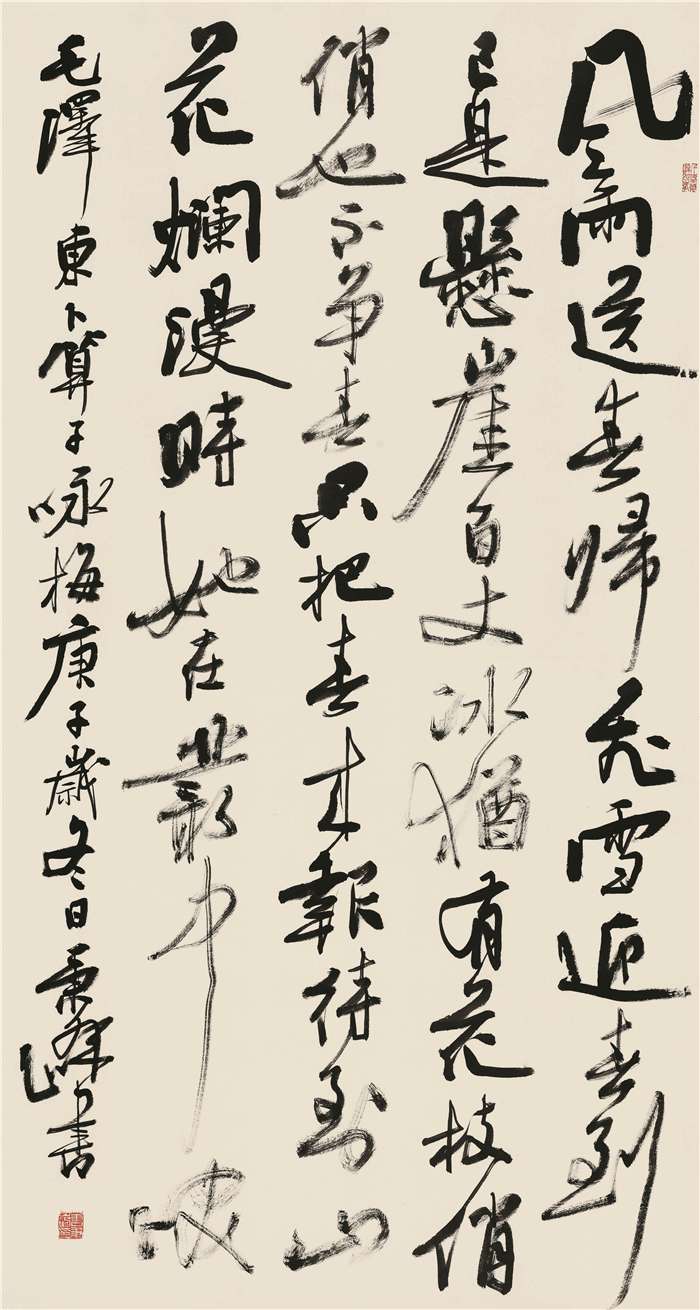 風雨送春歸飛雪迎春到
已是懸崖百丈冰猶有花枝俏
俏也不爭春只把春來報待到山
花爛漫時她在叢中咲
毛澤東卜算子咏梅庚子歲冬日秉書